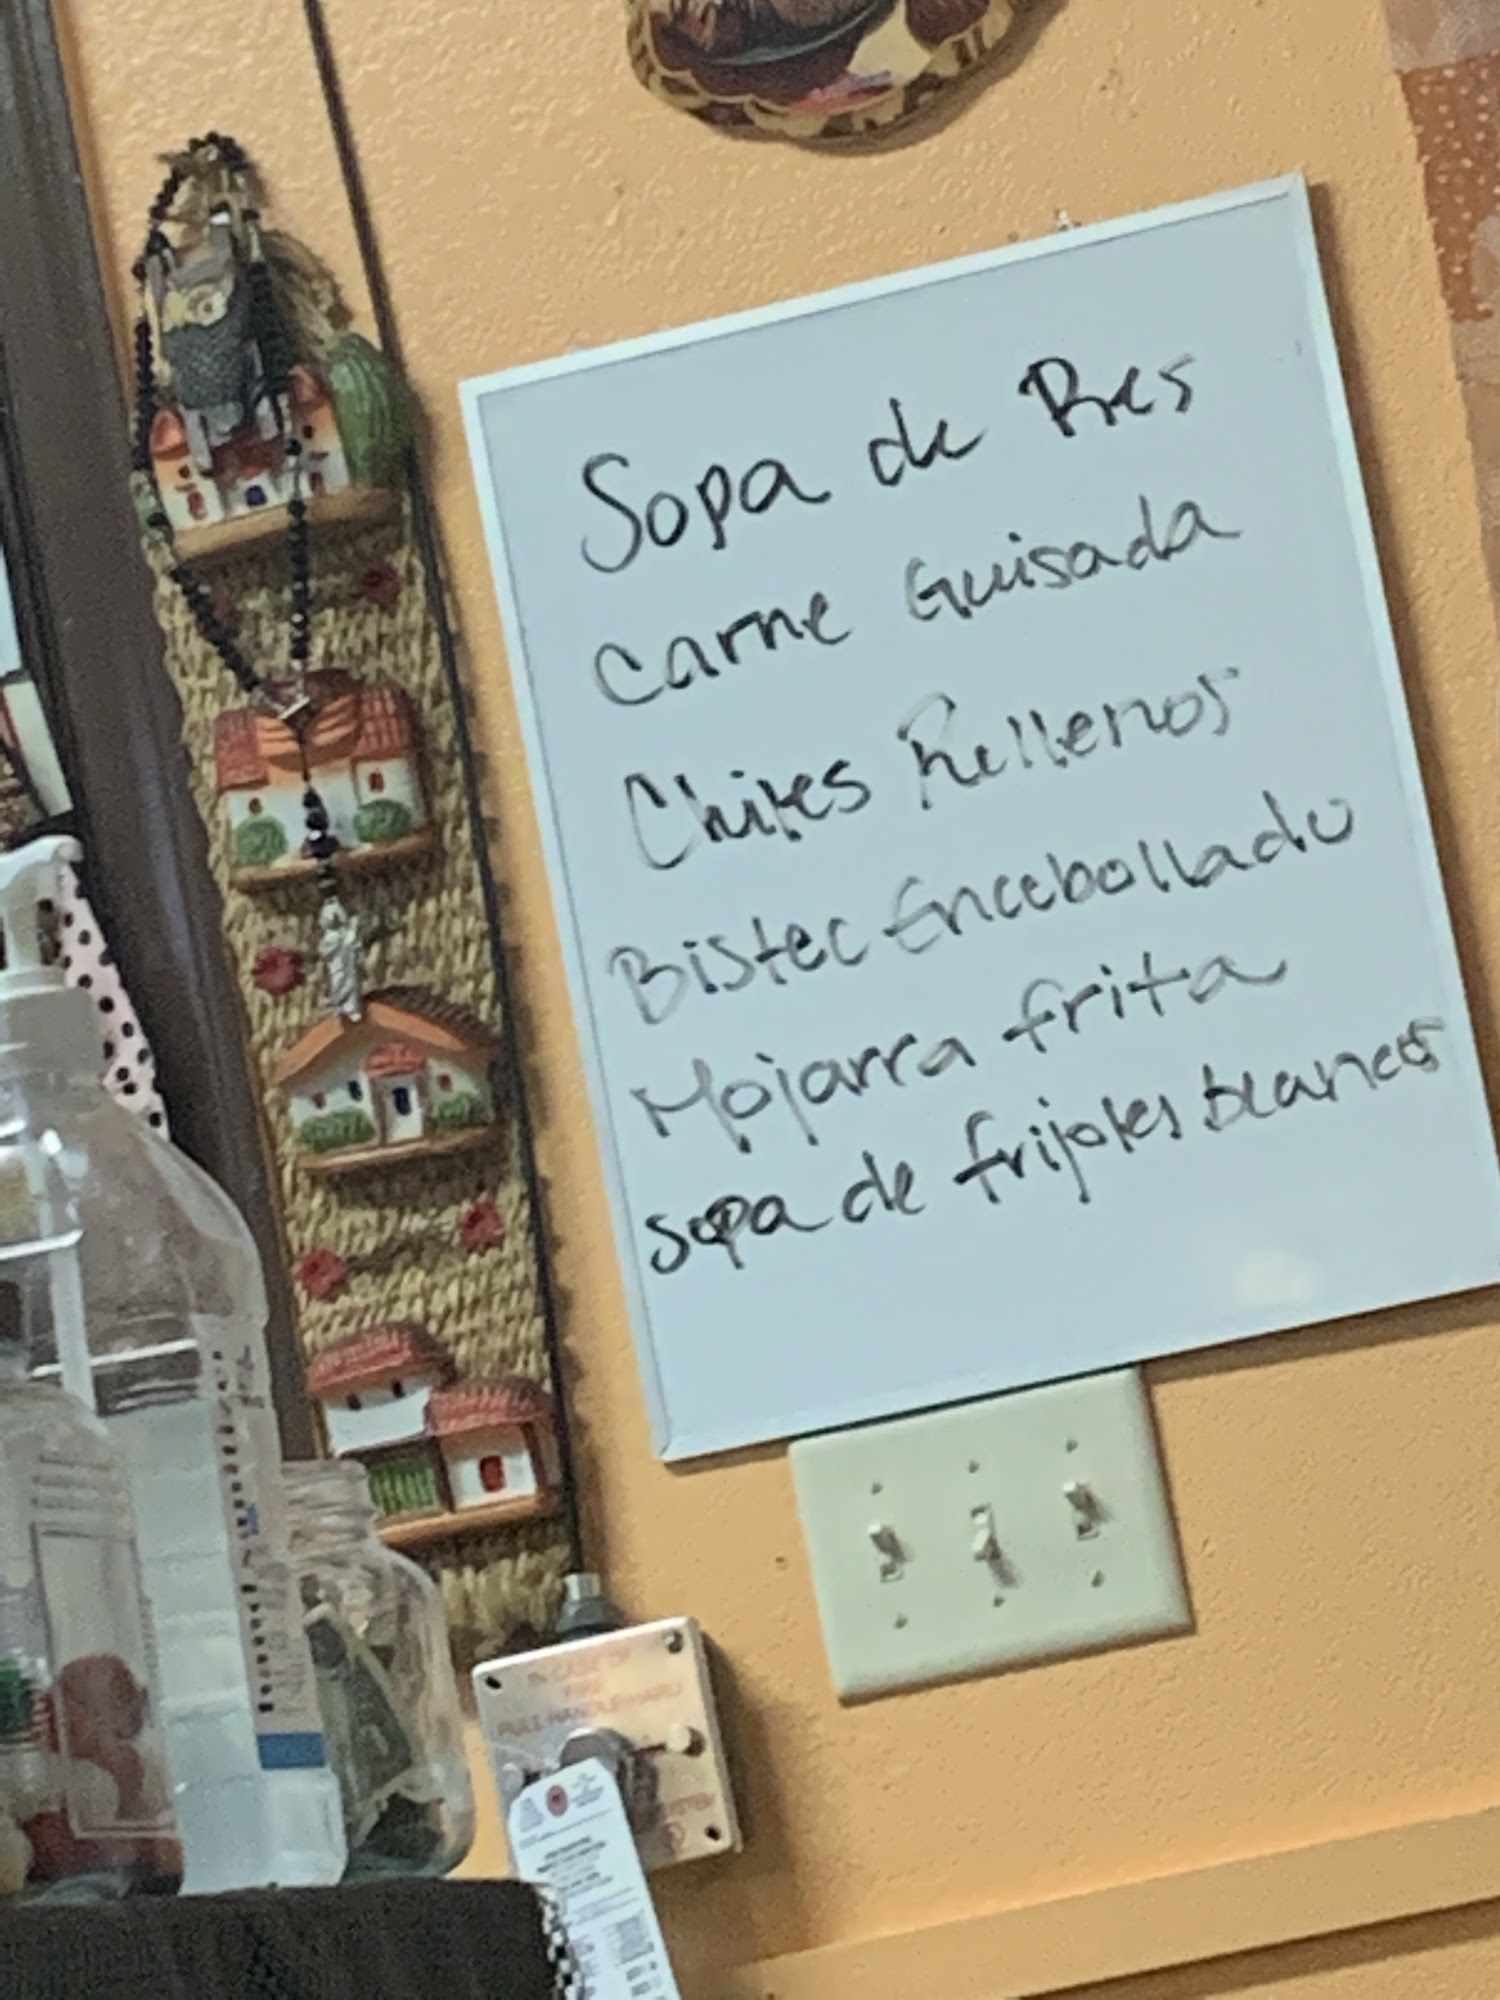 Sopa de Res
Carne Guisada
Chiles Rellenos
Bistec Encebollado
Mojarra frita
Sopa de frijoles blancos
IN CASE OF
FIRE
PULL HANDLE HARD